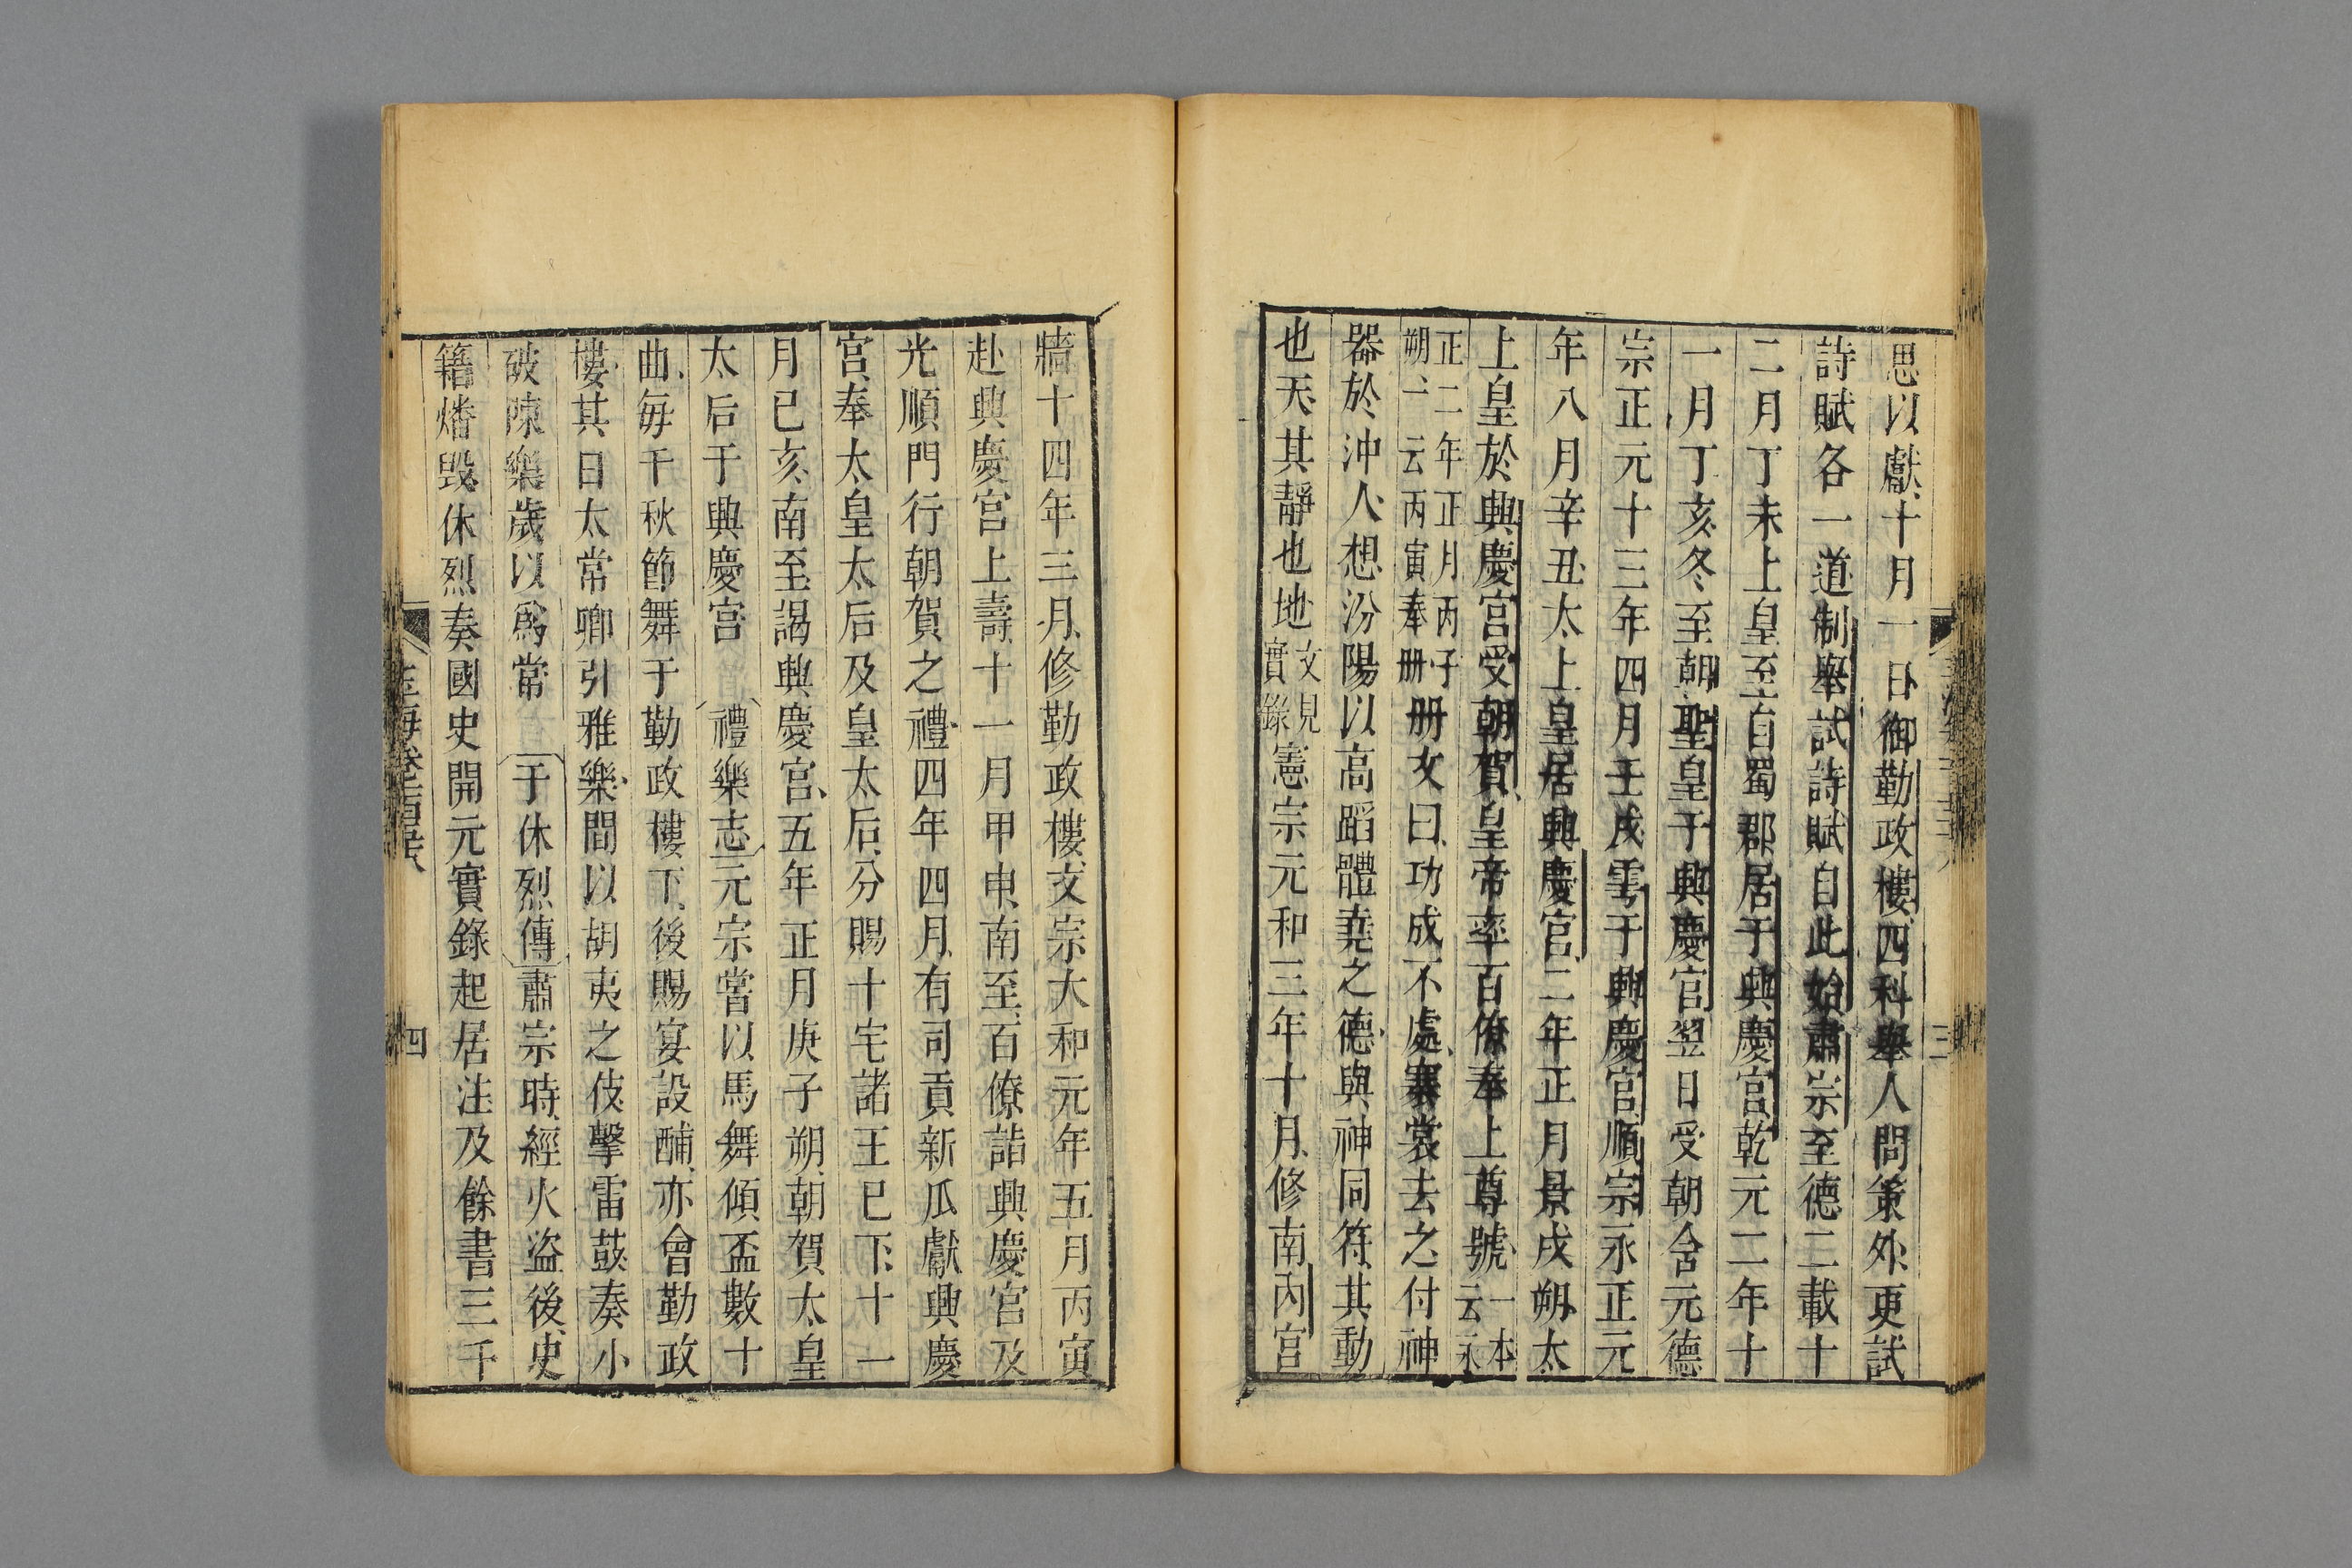 思以獻十月一日御勤政樓四科舉人問策外更試
詩賦各一道制舉試詩賦自此始肅宗至德二載十
二月丁未上皇至自蜀郡居于興慶宮乾元二年十
一月丁亥冬至朝聖皇于興慶宮翌日受朝含元德
宗正元十三年四月壬戌雩于興慶宮順宗永正元
年八月辛丑太上皇居興慶宮二年正月景戌朔太
上皇於興慶宮受朝賀皇帝率百僚奉上尊號一本云永
正二年正月丙子朔一云丙寅奉册册文曰功成不處褰裳去之付神
器於沖人想汾陽以高蹈體堯之德與神同符其動
也天其靜也地文見實錄憲宗元和三年十月修南內宮
牆十四年三月修勤政樓文宗大和元年五月丙寅
赴興慶宮上壽十一月甲申南至百僚詣興慶宮及
光順門行朝賀之禮四年四月有司貢新瓜獻興慶
宮奉太皇太后及皇太后分賜十宅諸王已下十一
月已亥南至謁興慶宮五年正月庚子朔朝賀太皇
太后于興慶宮禮樂志元宗嘗以馬舞傾盃數十
曲每千秋節舞于勤政樓下後賜宴設酺亦會勤政
樓其日太常卿引雅樂間以胡夷之伎擊雷鼓奏小
破陳樂歲以爲常于休烈傳肅宗時經火盜後史
籍燔毀休烈奏國史開元實錄起居注及餘書三千
玉海卷一百五十八
四
三